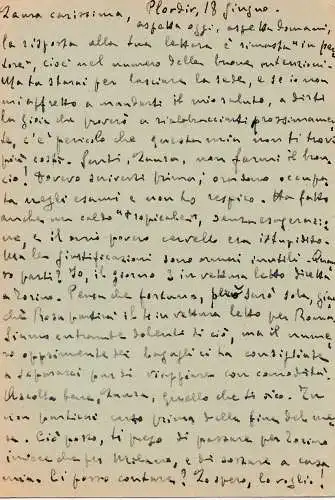 Laura carissima, Plordir, 18 giugno.
aspetta oggi, aspetta domani,
la risposta alla tua lettera è rimasta "in pec
tore", cioè nel numero delle buone intenzioni.
Ma tu starai per lasciare la sede, e se io non
mi affretto a mandarti il mio saluto, a dirti
la gioia che proverò a riabbracciarti prossimamen
te, c'è pericolo che questa mia non ti trovi
più costì. Senti, Laura, non farmi il bron
cio! Dovevo scriverti prima, ma sono occupa
ta negli esami e non ho respiro. Ha fatto
anche un caldo "tropicale", senza esagerazio
ne, e il mio povero cervello era istupidito.
Ma le giustificazioni sono ormai inutili. Quan
do parti? Io, il giorno 3 in vettura letto diretta
a Torino. Pensa che fortuna, però sarò sola, giac
chè Rosa partirà il in vettura letto per Roma.
Siamo entrambe dolenti di ciò, ma il nume
ro opprimente dei bagagli ci ha consigliate
a separarci pur di viaggiare con comodità.
Ascolta bene, Laura, quello che ti dico. Tu
non partirai certo prima della fine del me
se. Ciò posto, ti prego di passare per Torino
invece che per Milano, e di sostare a casa
mia. Ci posso contare? Lo spero, lo voglio!